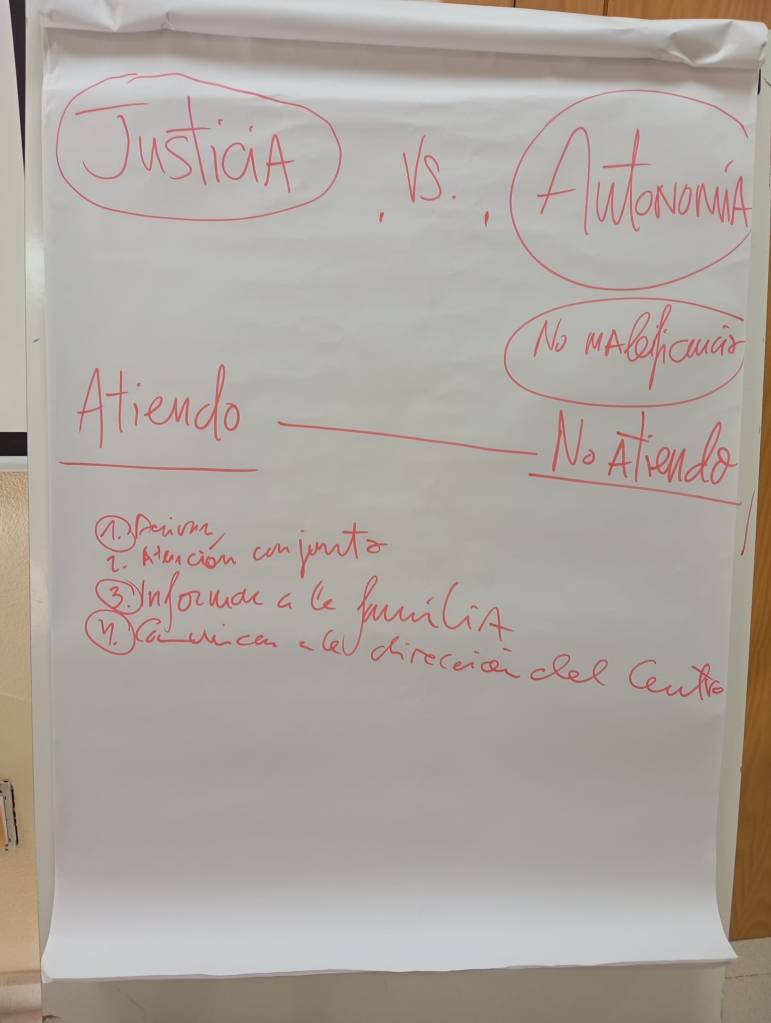 Justicia vs. Autonomía
No maleficencia
Atiendo — No Atiendo
1. Derivar,
2. Atención conjunta
3. Informar a la familia
4. Comunicar a la dirección del Centro